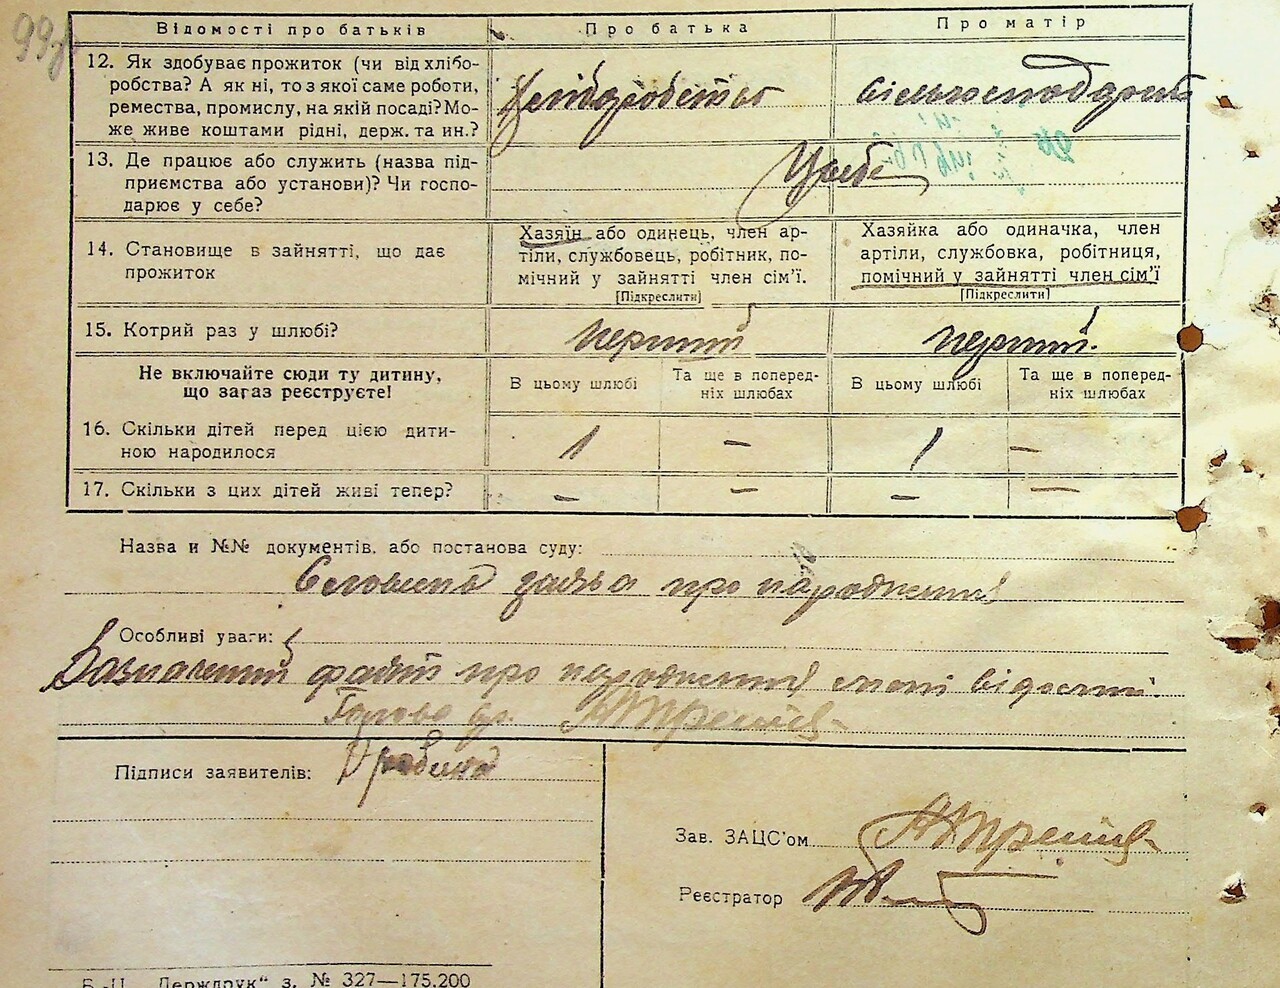 99
Відомості про батьків Про батька Про матір
12. Як здобуває прожиток (чи від хлібо-
робства? А як ні, то з якої саме роботи,
ремества, промислу, на якій посаді? Мо-
же живе коштами рідні, держ. та ин.?
13. Де працює або служить (назва під-
приємства або установи)? Чи госпо-
дарює у себе?
14. Становище в зайнятті, що дає
прожиток
Хазяїн або одинець, член ар-
тіли, службовець, робітник, по-
мічний у зайнятті член сім'ї.
[Підкреслити]
Хазяйка або одиначка, член
артіли, службовка, робітниця,
помічний у зайнятті член сім'ї
[Підкреслити]
15. Котрий раз у шлюбі? перший перший.
Не включайте сюди ту дитину,
що загаз реєструєте!
В цьому шлюбі
Та ще в поперед-
ніх шлюбах
В цьому шлюбі
Та ще в поперед-
ніх шлюбах
16. Скільки дітей перед цією дити-
ною народилося
1 – 1 –
17. Скільки з цих дітей живі тепер? – – – –
Назва и №№ документів, або постанова суду:
Словесна заява про народження
Особливі уваги:
Зазначений факт про народження мені відомий.
Голова
Підписи заявителів:
Зав. ЗАЦС'ом
Реєстратор
Б.-Ц. „Держдрук" з. № 327—175.200